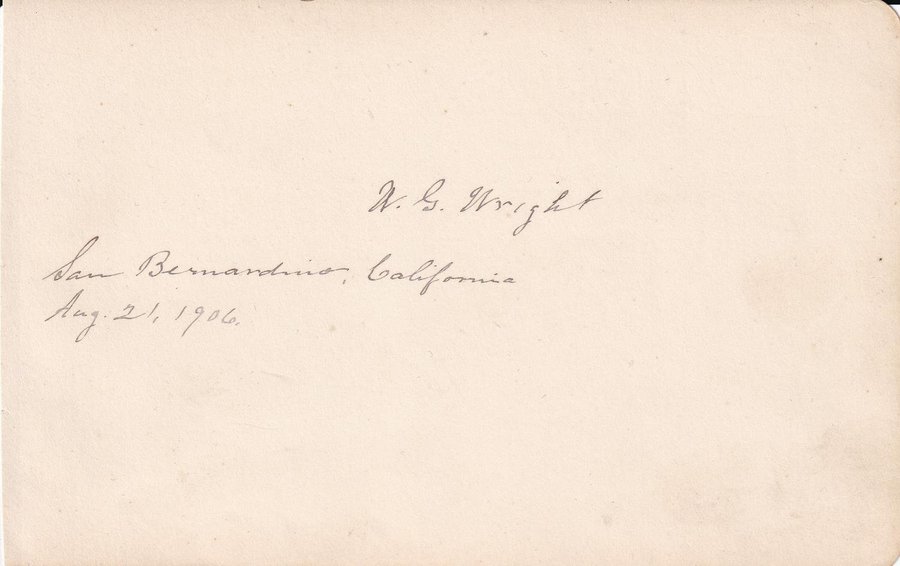 W. G. Wright
San Bernardino, California
Aug. 21, 1906.